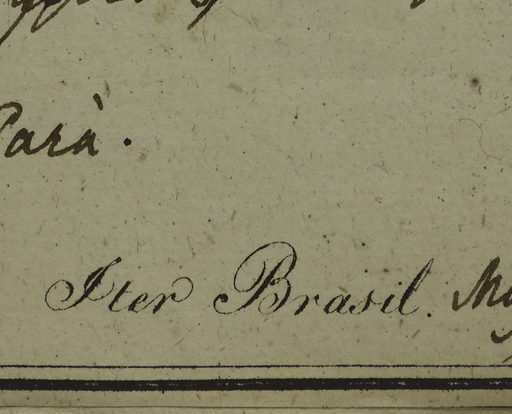 Parà.
Iter Brasil.